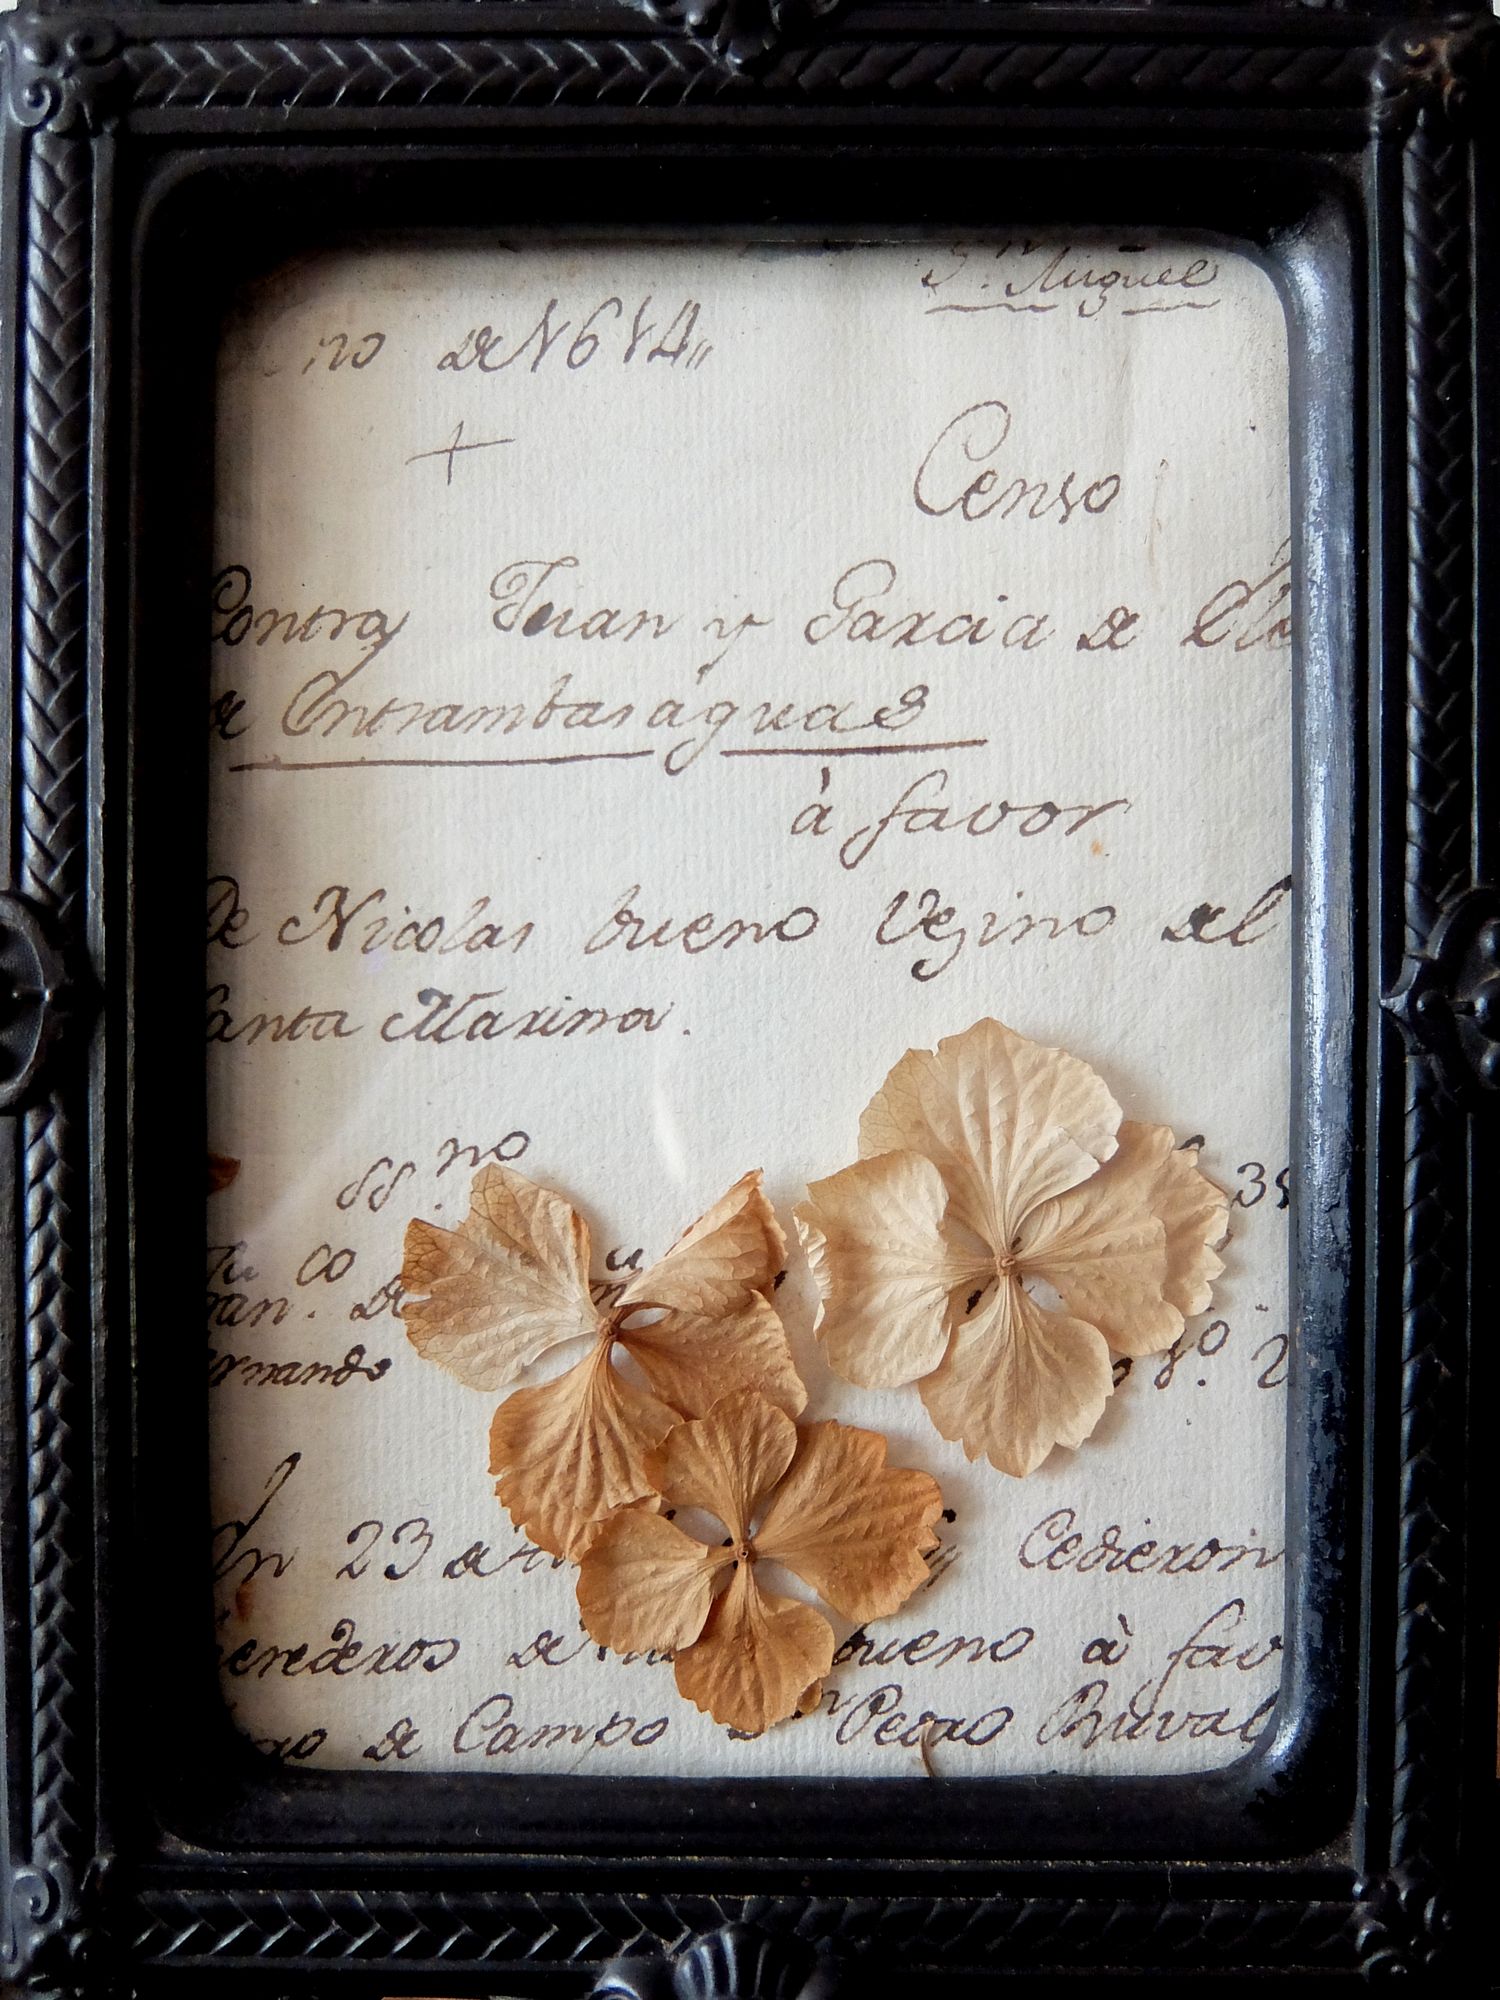 Sn. Miguel
no de 1614,,
Censo
Contra Juan y Garcia de
de Entrambaságuas
à favor
De Nicolas bueno Vezino del
anta Marina.
no
co
an. de
rnando
In 23 de Cedieron
erederos de bueno à fav
de Campo Pedro Ruval